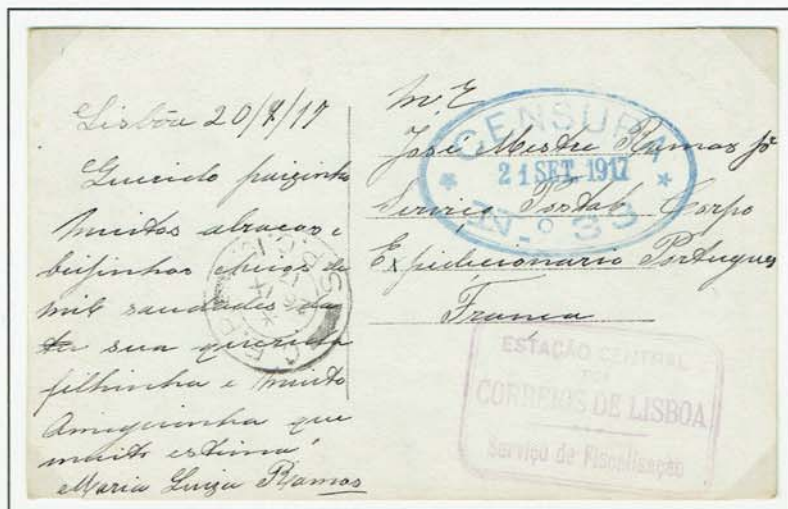 Lisbôa 20/9/17
Querido paizinho
Muitos abraços e
beijinhos cheios de
mil saudades da
sua querida
filhinha e muito
Amiguinha que
muito estima
Maria Luiza Ramos
José Mestre Ramos Jor
Serviço Postal Corpo
Expedicionario Portuguez
França
CENSURA
21 SET. 1917
N.º 33
C.E.P.
S.P.C.
ESTAÇÃO CENTRAL
DOS
CORREIOS DE LISBOA
Serviço de Fiscalisação